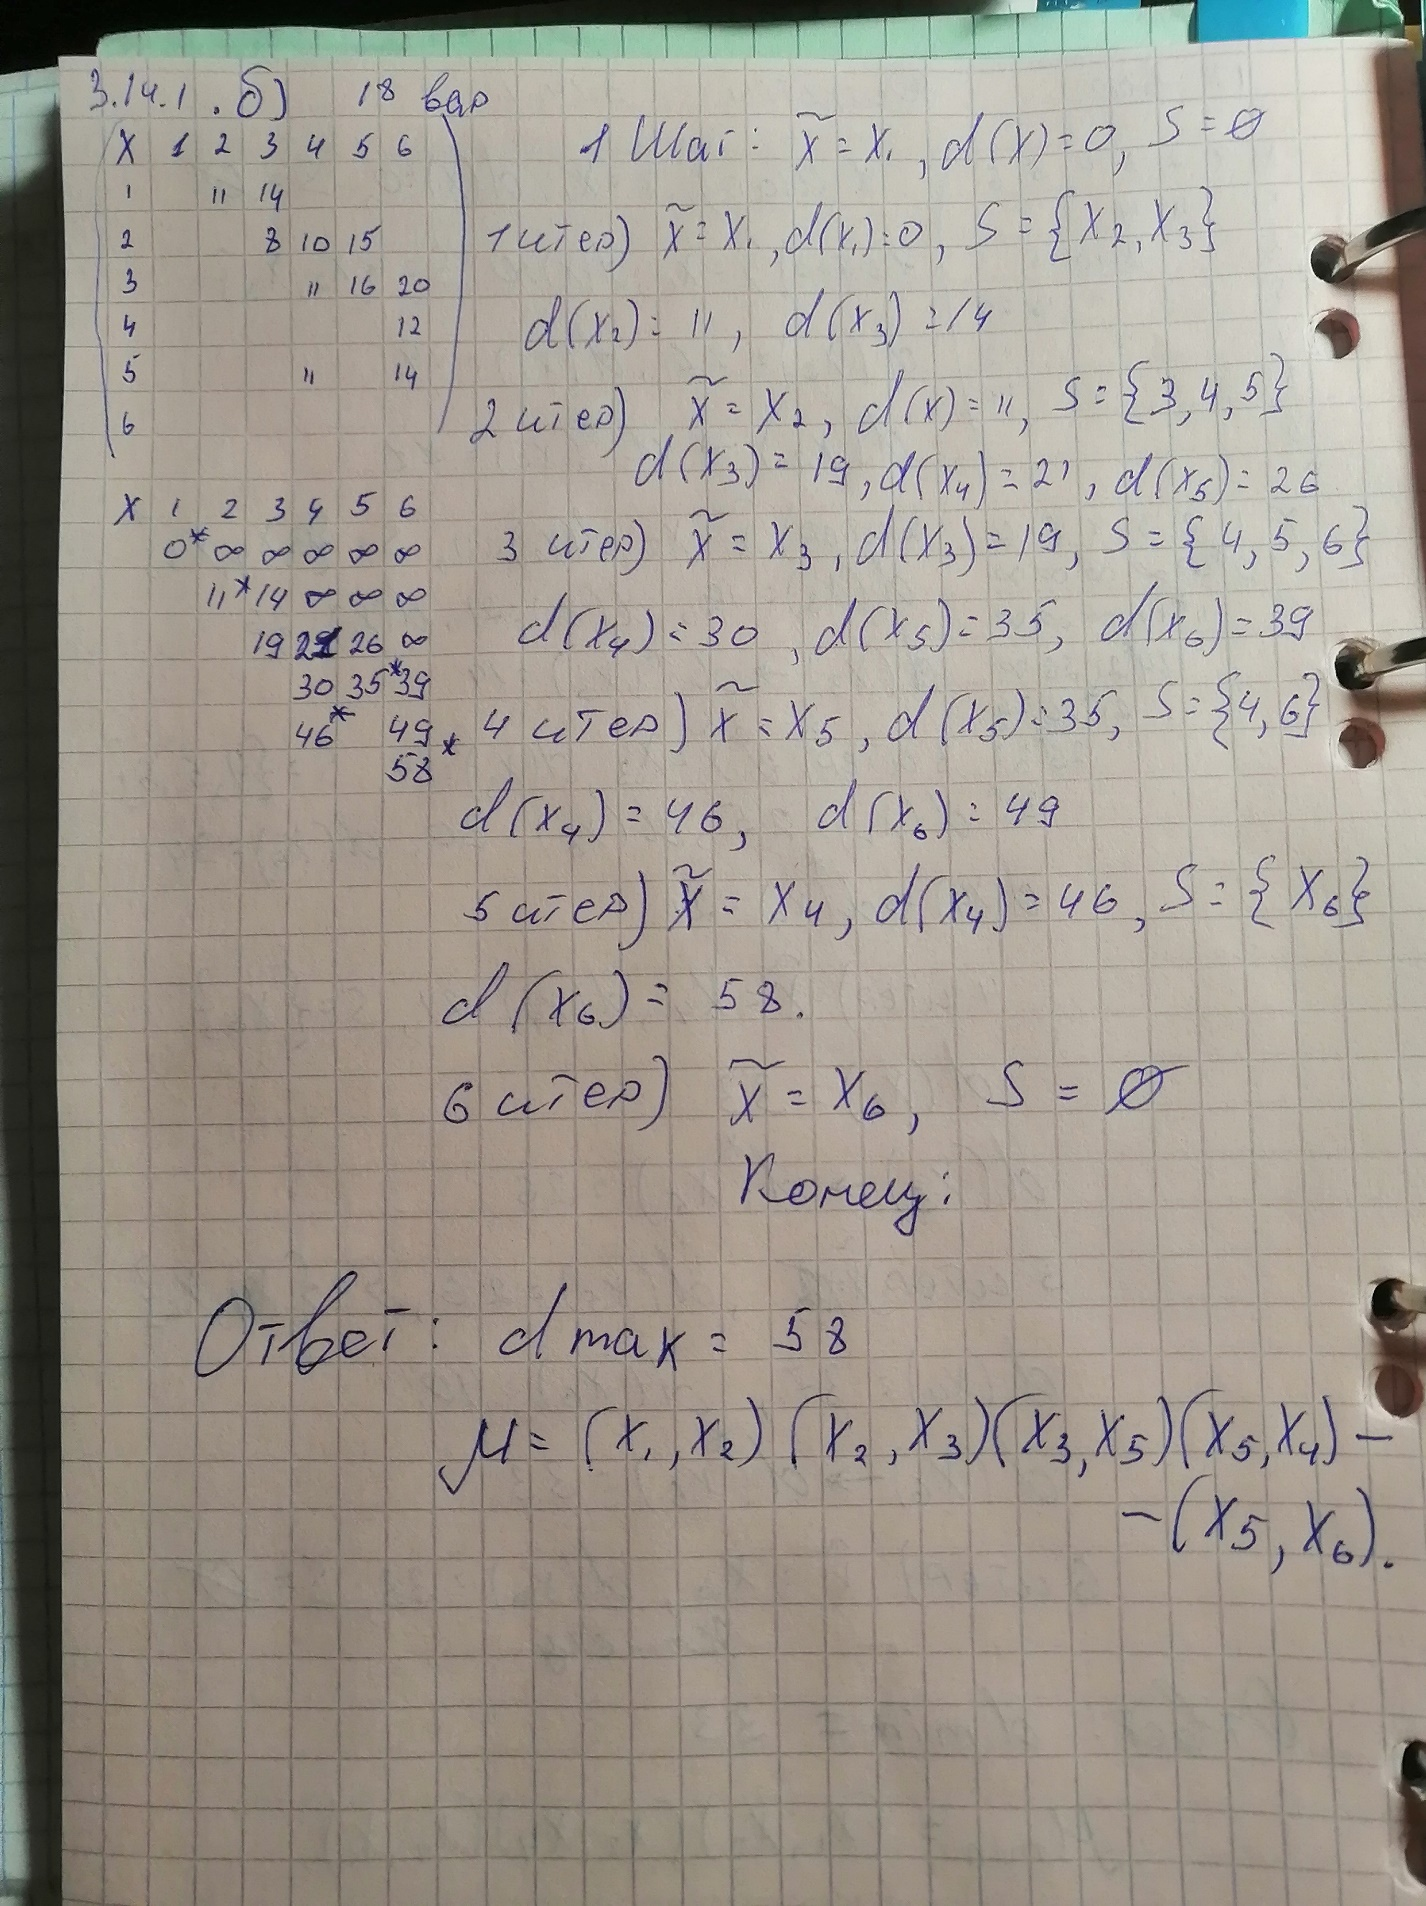 3.14.1 . б) 18 вар
X 1 2 3 4 5 6
1 11 14
2 8 10 15
3 11 16 20
4 12
5 11 14
6
X 1 2 3 4 5 6
0* ∞ ∞ ∞ ∞ ∞
11* 14 ∞ ∞ ∞
19 21 26 ∞
30 35* 39
46* 49
58*
1 Шаг: x̃ = x₁, d(x) = 0, S = ∅
1 итер) x̃ = x₁, d(x₁) = 0, S = {x₂, x₃}
d(x₂) = 11, d(x₃) = 14
2 итер) x̃ = x₂, d(x) = 11, S = {3, 4, 5}
d(x₃) = 19, d(x₄) = 21, d(x₅) = 26
3 итер) x̃ = x₃, d(x₃) = 19, S = {4, 5, 6}
d(x₄) = 30, d(x₅) = 35, d(x₆) = 39
4 итер) x̃ = x₅, d(x₅) = 35, S = {4, 6}
d(x₄) = 46, d(x₆) = 49
5 итер) x̃ = x₄, d(x₄) = 46, S = {x₆}
d(x₆) = 58.
6 итер) x̃ = x₆, S = ∅
Конец:
Ответ: d max = 58
μ = (x₁, x₂) (x₂, x₃)(x₃, x₅)(x₅, x₄) –
– (x₅, x₆).